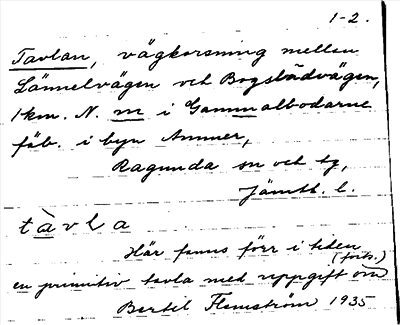 1-2.
Tavlan, vägkorsning mellan
Lännelvägen och Bogstadvägen,
1 km. N. m i Gammalbodarne
fäb. i byn Ammer,
Ragunda sn och tg,
Jämtl. l.
tàvla
Här fanns förr i tiden
(forts.)
en primitiv tavla med uppgift om
Bertil Flemström 1935